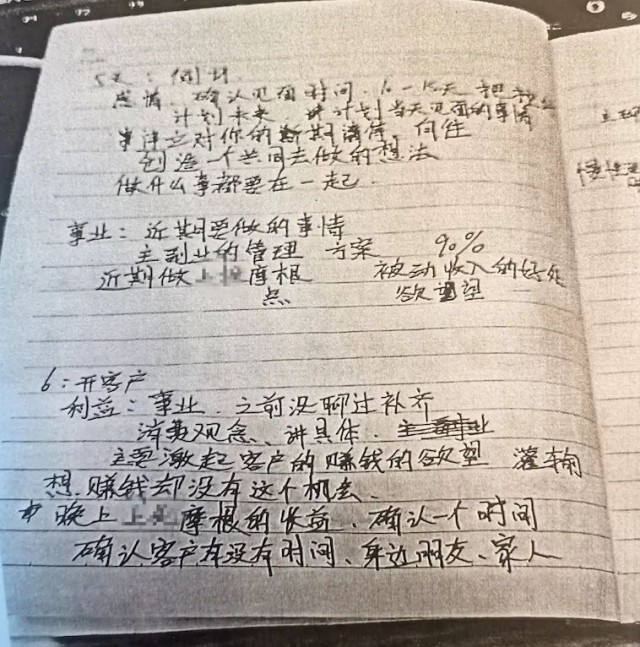 5天：
感情、确认见面时间、
计划未来 计划当天见面的事情
对你的 期 、向往
创造一个共同去做的想法
做什么事都要在一起.
事业：近期要做的事情
主副业的管理 方案 90%
近期做 摩根 被动收入的好处
点 欲望
6：开客户
利益：事业、之前没聊过补齐
消费观念、讲具体、
主要激起客户的赚钱的欲望 灌输
想赚钱却没有这个机会、
晚上 摩根的收益、确认一个时间
确认客户有没有时间、身边朋友、家人